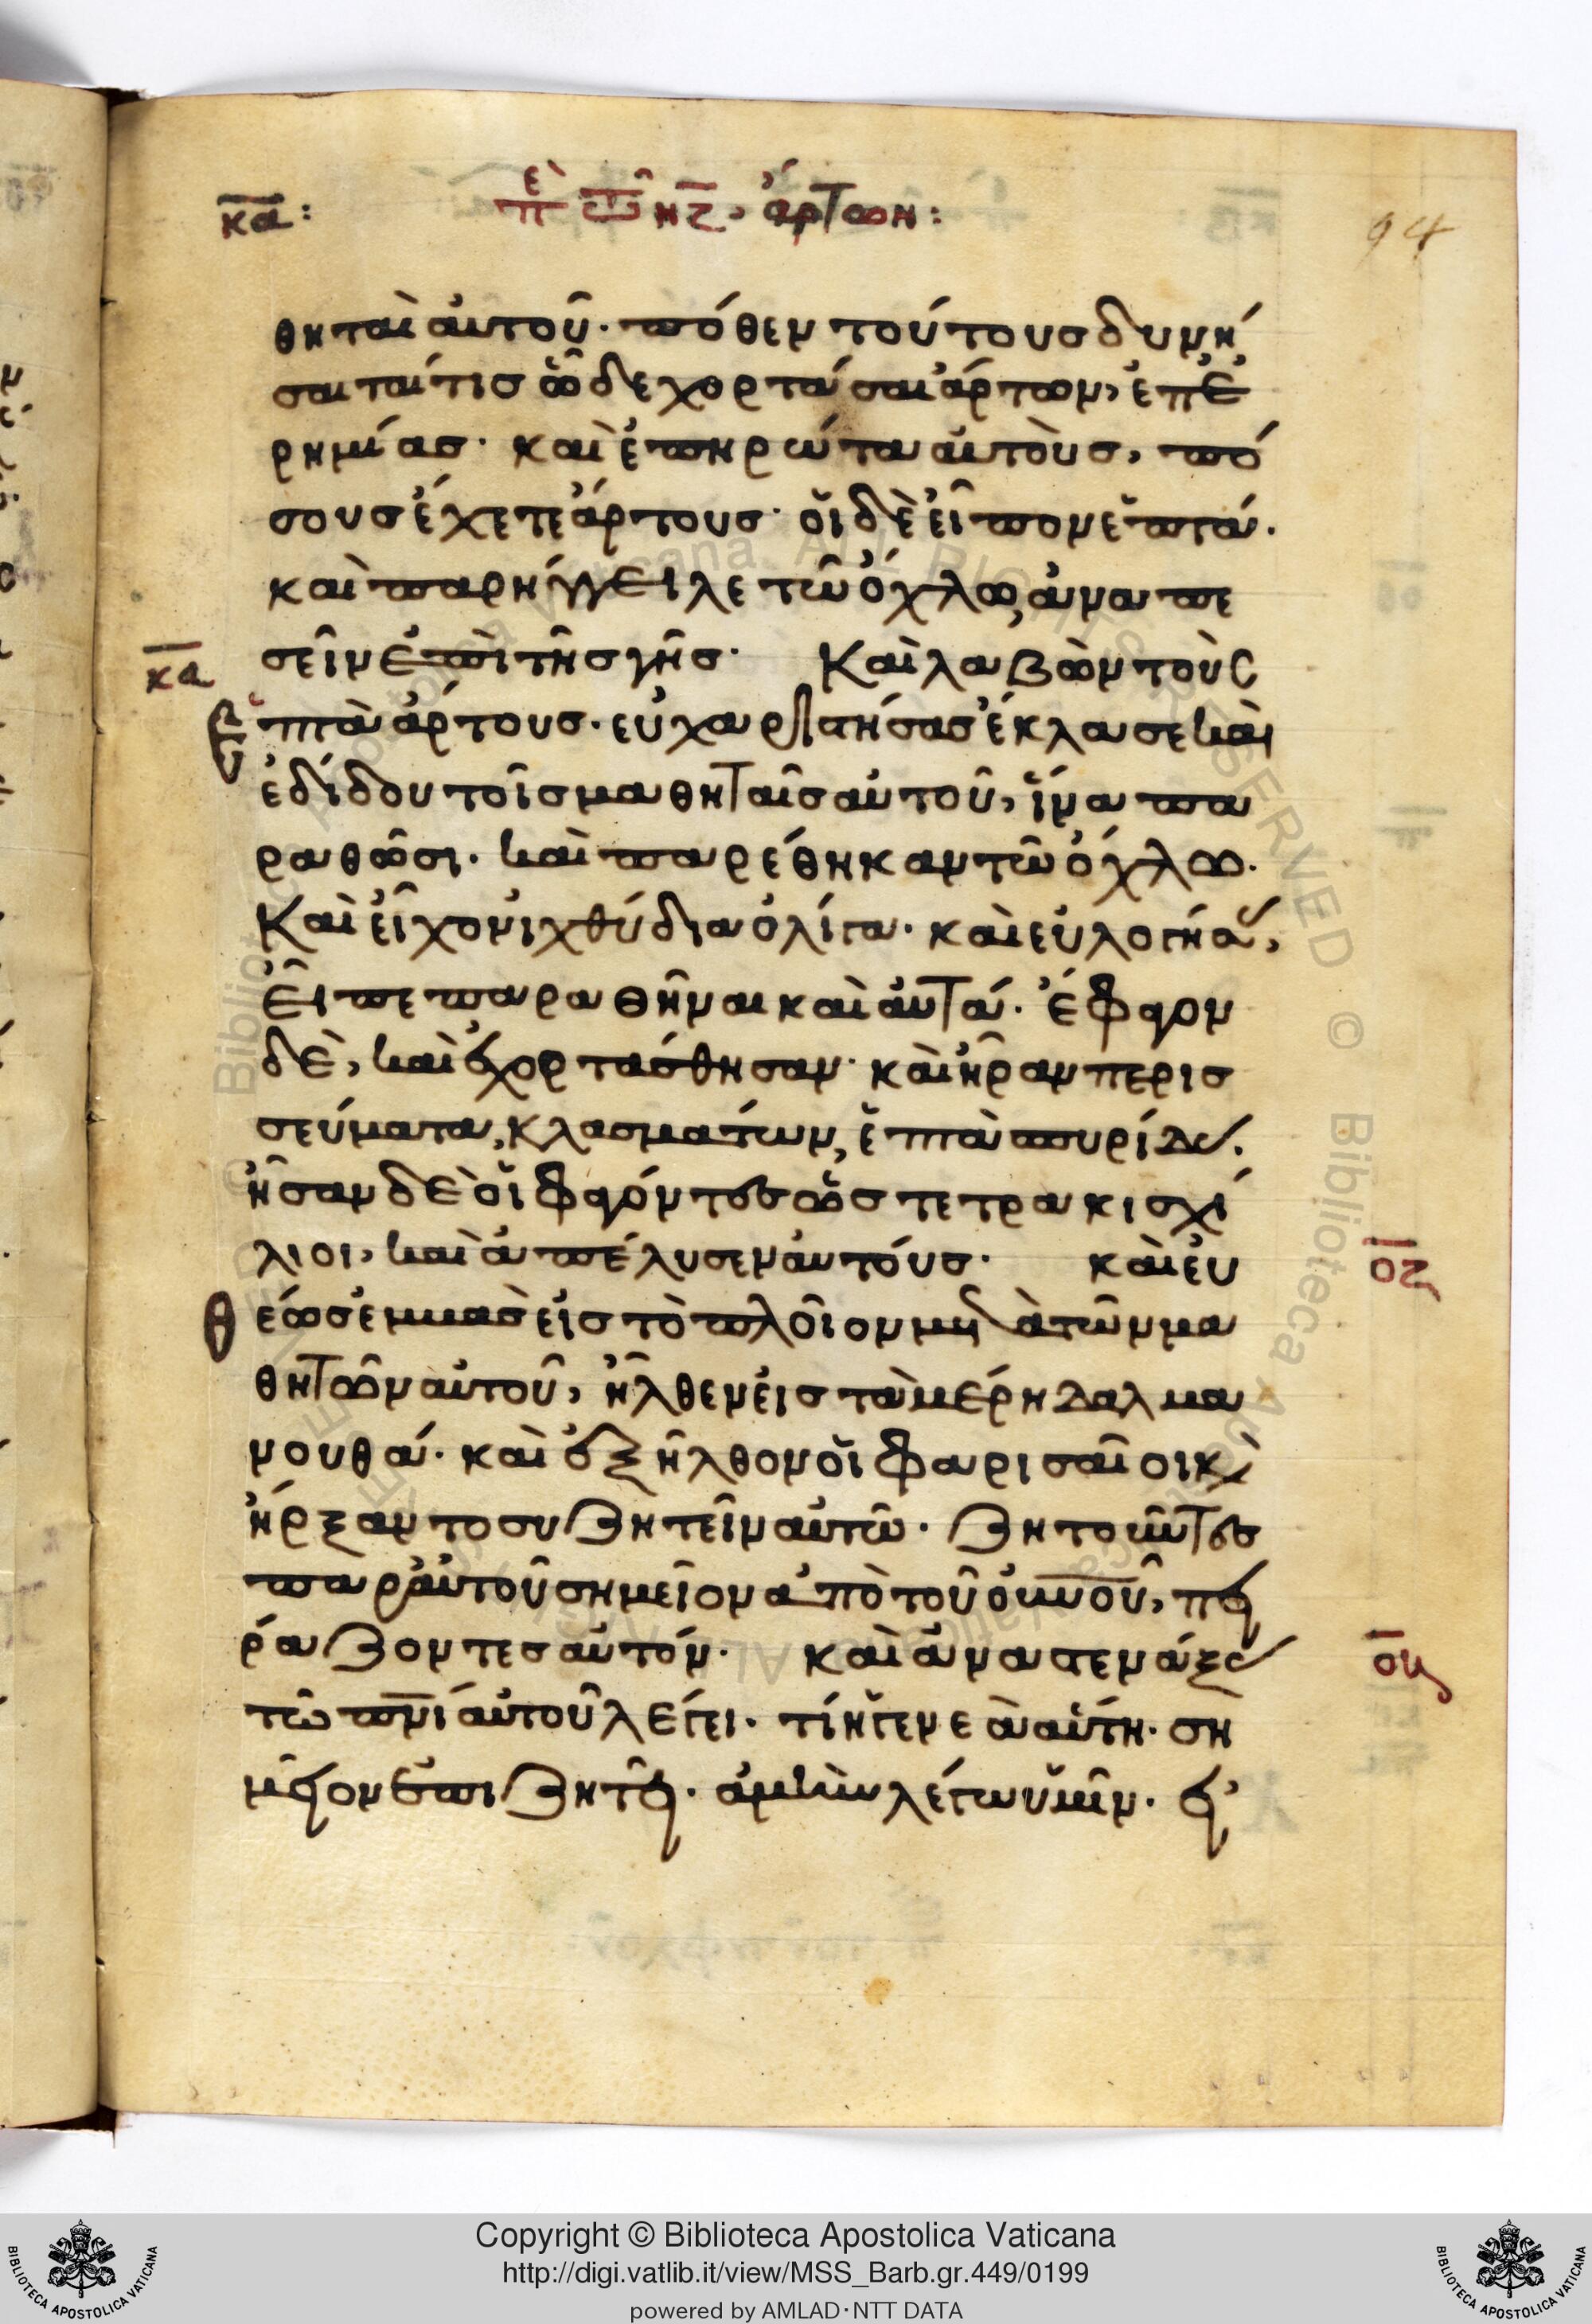 κα: περὶ τῶν ζ, ἄρτων:
94
θηταὶ αὐτοῦ· πόθεν τούτους δυνή
σεταί τις ὧδε χορτάσαι ἄρτων, ἐπ' ἐ
ρημίας· καὶ ἐπηρώτα αὐτοὺς, πό
σους ἔχετε ἄρτους· οἱ δὲ εἶπον ἑπτά·
καὶ παρήγγειλε τῶ ὄχλω, ἀναπε
σεῖν ἐπὶ τῆς γῆς· Καὶ λαβὼν τοὺς
κα
ἑπτὰ ἄρτους· εὐχαριστήσας ἔκλασε καὶ
ἐδίδου τοῖς μαθηταῖς αὐτοῦ, ἵνα πα
ραθῶσι· καὶ παρέθηκαν τῶ ὄχλω·
Καὶ εἶχον ἰχθύδια ὀλίγα· καὶ εὐλογήσας,
εἶπε παραθῆναι καὶ αὐτά· ἔφαγον
δὲ, καὶ ἐχορτάσθησαν· καὶ ἦραν περισ
σεύματα, κλασμάτων, ἑπτὰ σπυρίδας·
ἦσαν δὲ οἱ φαγόντες ὡς τετρακισχί
λιοι, καὶ ἀπέλυσεν αὐτούς· καὶ εὐ
οζ
θέως ἐμβὰς εἰς τὸ πλοῖον μετὰ τῶν μα
θητῶν αὐτοῦ, ἦλθεν εἰς τὰ μέρη Δαλμα
νουθά· καὶ ἐξῆλθον οἱ φαρισαῖοι καὶ
ἤρξαντο συζητεῖν αὐτῶ· ζητοῦντες
παρ' αὐτοῦ σημεῖον ἀπὸ τοῦ οὐνοῦ, πει
ράζοντες αὐτόν· καὶ ἀναστενάξας
οη
τῶ πνι αὐτοῦ λέγει· τί ἡ γενεὰ αὕτη· ση
μεῖον ἐπιζητεῖ· ἀμὴν λέγω ὑμῖν· εἰ
Copyright © Biblioteca Apostolica Vaticana
http://digi.vatlib.it/view/MSS_Barb.gr.449/0199
powered by AMLAD·NTT DATA
BIBLIOTECA APOSTOLICA VATICANA
BIBLIOTECA APOSTOLICA VATICANA